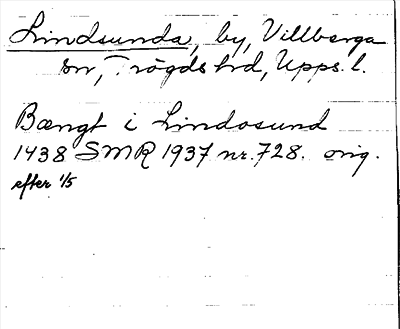 Lindsunda, by, Villberga
sn, Trögds hd, Upps. l.
Bængt i Lindosund
1438 SMR 1937 nr. 728. orig.
efter 1/5